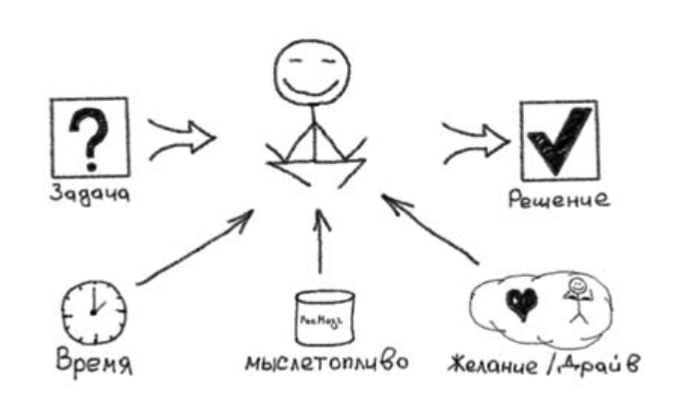 ?
Задача
Решение
Время
мыслетопливо
Желание/Драйв